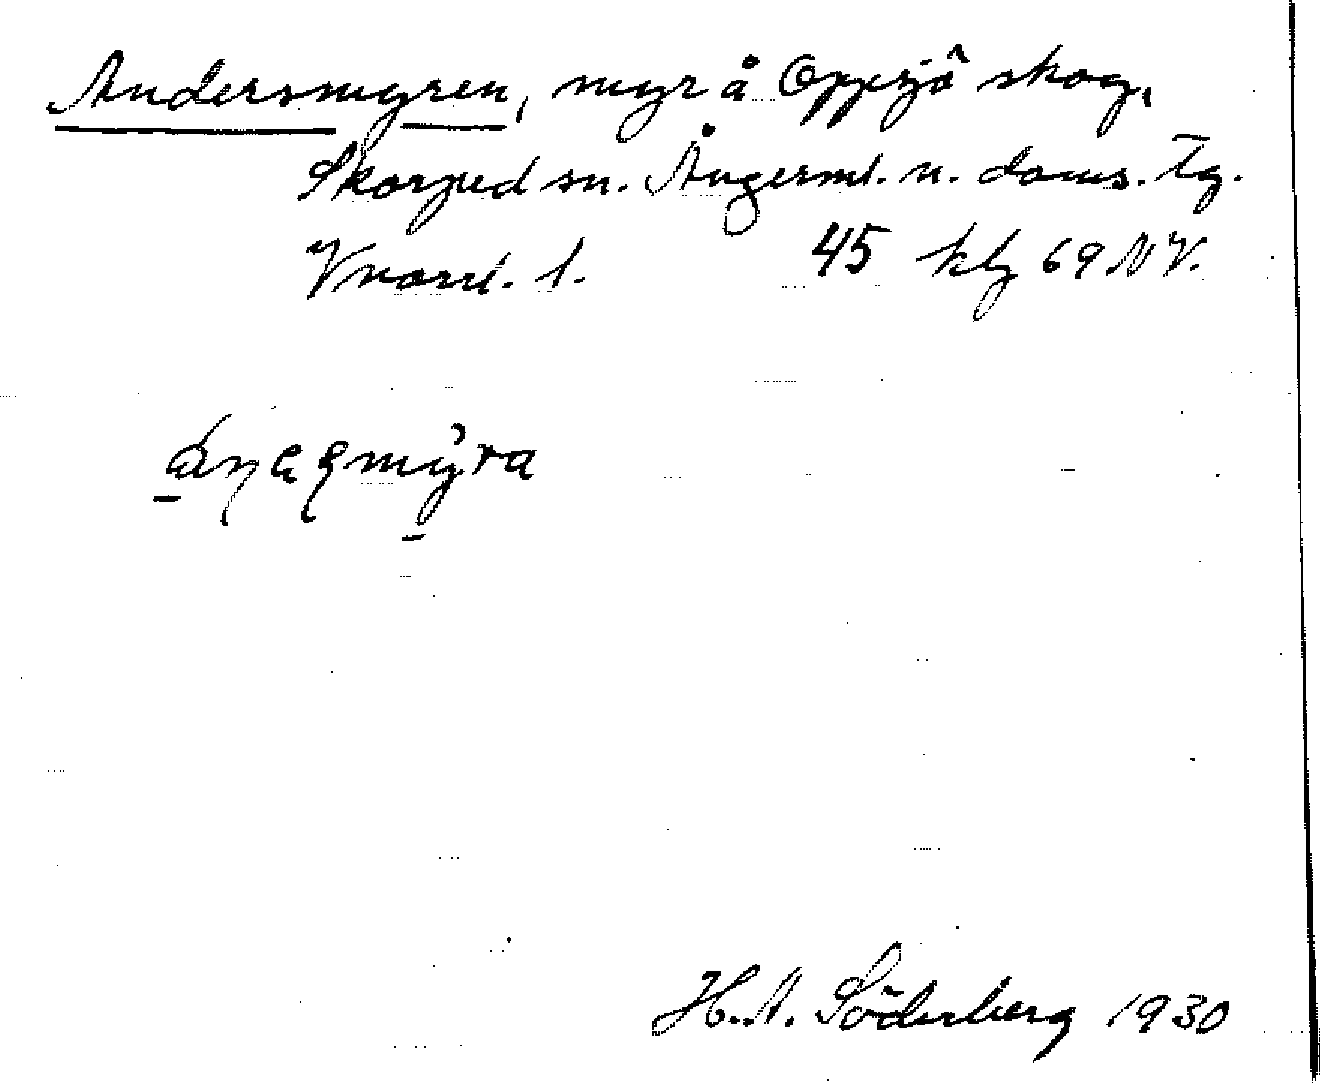 Andersmyren, myr å Oppsjö skog,
Skorped sn. Ångerml. n. doms. tg.
Vnorrl. l. 45 kbg 69 NV.
H.A. Söderberg 1930